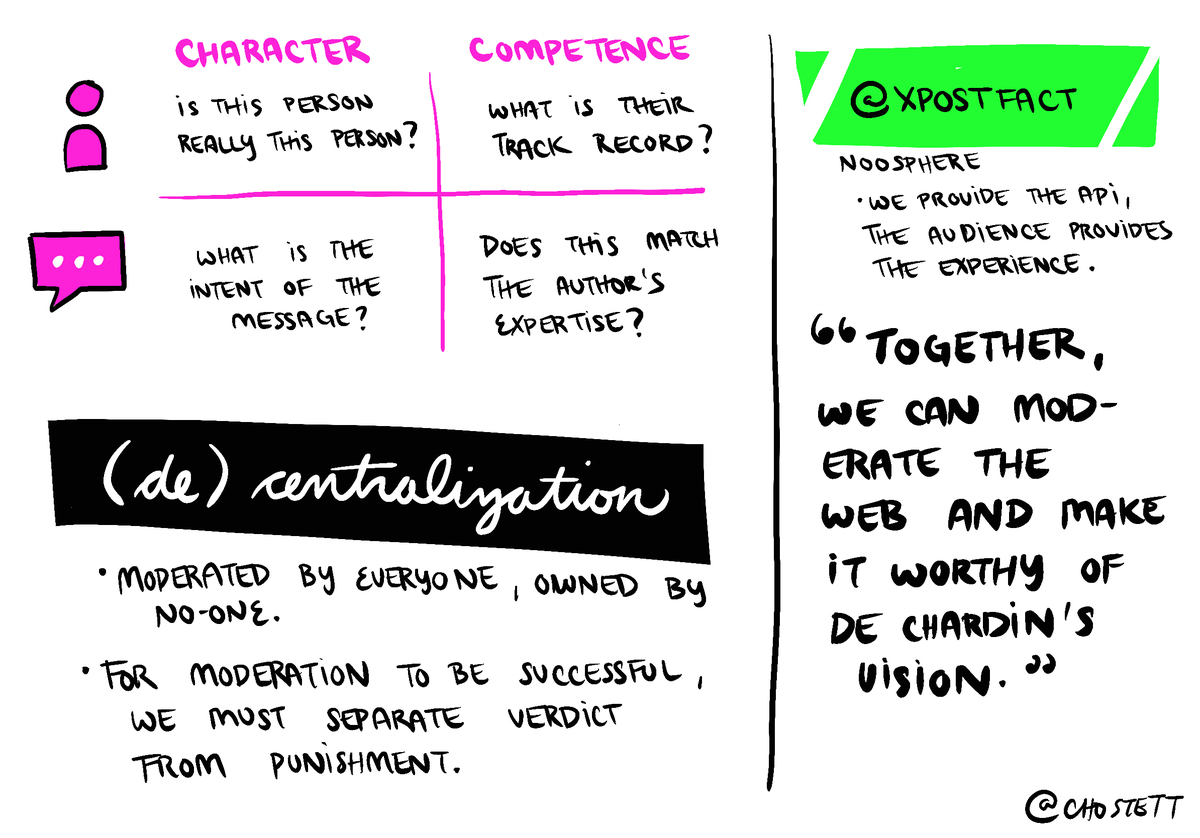 CHARACTER
COMPETENCE
iS THiS PERSON
REALLY THiS PERSON?
WHAT iS THEiR
TRACK RECORD?
WHAT iS THE
iNTENT OF THE
MESSAGE?
DOES THiS MATCH
THE AUTHOR'S
EXPERTiSE?
(de) centralization
• MODERATED BY EVERYONE, OWNED BY
NO-ONE.
• FOR MODERATION TO BE SUCCESSFUL,
WE MUST SEPARATE VERDiCT
FROM PUNiSHMENT.
@XPOSTFACT
NOOSPHERE
• WE PROViDE THE APi,
THE AUDiENCE PROViDES
THE EXPERiENCE.
“TOGETHER,
WE CAN MOD-
ERATE THE
WEB AND MAKE
iT WORTHY OF
DE CHARDiN'S
ViSiON.”
@CHOSTETT